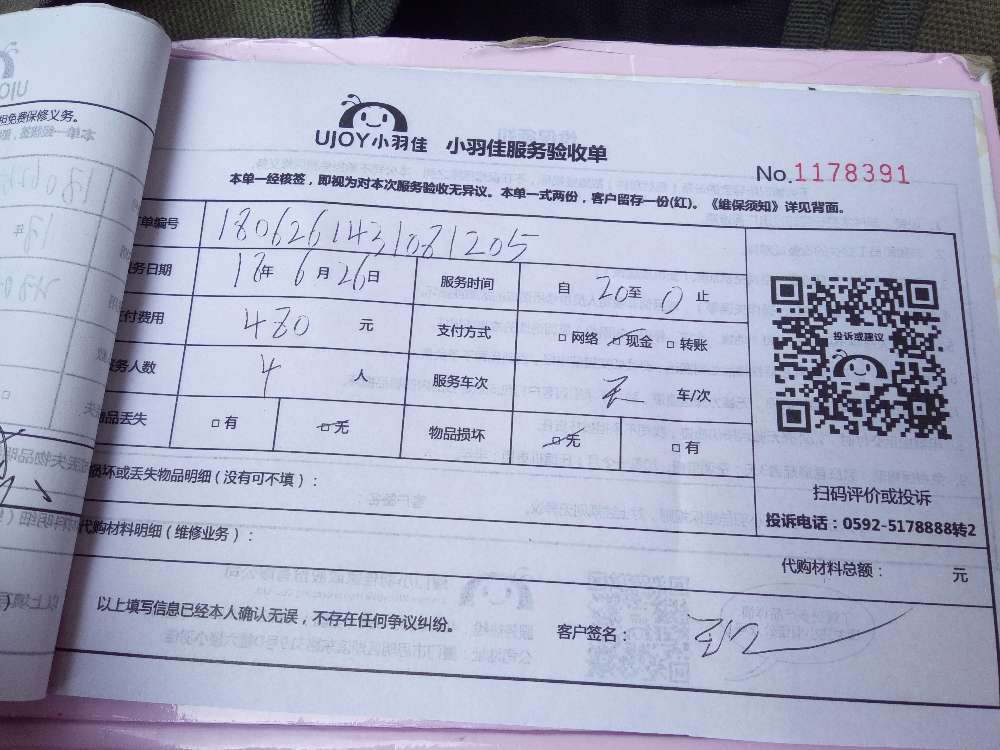 UJOY小羽佳 小羽佳服务验收单
No.1178391
本单一经核签，即视为对本次服务验收无异议。本单一式两份，客户留存一份(红)。《维保须知》详见背面。
担免费保修义务。
单编号 1806261431081205
务日期 18年6月26日 服务时间 自20至0止
付费用 480元 支付方式 □网络 ☑现金 □转账
务人数 4人 服务车次 车/次
品丢失 □有 ☑无 物品损坏 ☑无 □有
投诉或建议
扫码评价或投诉
投诉电话：0592-5178888转2
损坏或丢失物品明细（没有可不填）：
代购材料明细（维修业务）：
代购材料总额： 元
以上填写信息已经本人确认无误，不存在任何争议纠纷。
客户签名：